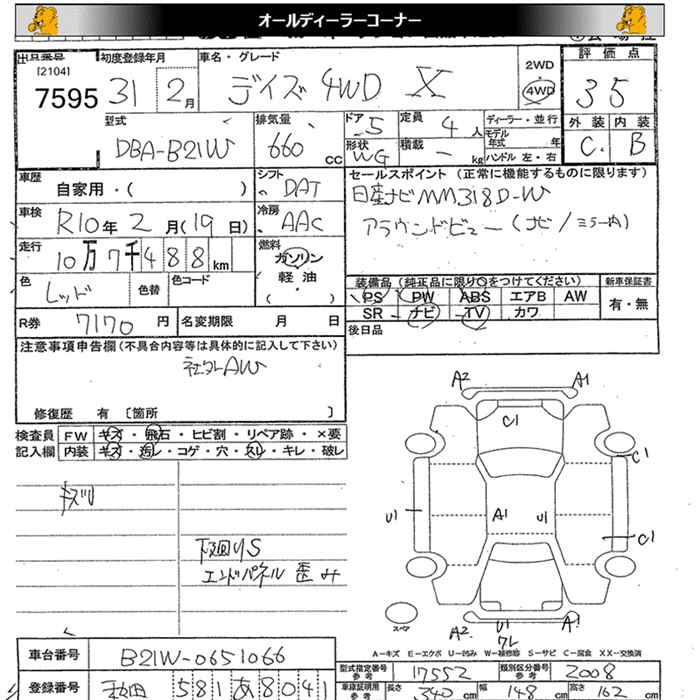 オールディーラーコーナー
出品番号 [2104] 7595
初度登録年月 31年 2月
車名・グレード デイズ 4WD X
2WD・4WD
評価点 35
外装 C. 内装 B
型式 DBA-B21W
排気量 660 cc
ドア 5 形状 WG
定員 4人 積載 - kg
ディーラー・並行
モデル年式 年
ハンドル 左・右
車歴 自家用・( )
シフト DAT
セールスポイント (正常に機能するものに限ります)
日産ナビMM318D-W
アラウンドビュー(ナビ/ミラー内)
車検 R10年 2月(19日)
冷房 AAC
走行 10万7千488km
燃料 ガソリン 軽油 ( ・ )
色 レッド 色替 色コード
装備品 (純正品に限り○をつけてください) 新車保証書
PS PW ABS エアB AW 有・無
SR ナビ TV カワ
R券 7170円 名変期限 月 日
後日品
注意事項申告欄 (不具合内容等は具体的に記入して下さい)
社外AW
修復歴 有 〔箇所 〕
検査員 FW キズ・飛石・ヒビ割・リペア跡・×要
記入欄 内装 キズ・汚レ・コゲ・穴・スレ・キレ・破レ
A2 A1
C1
C1
U1 A1 U1
C1
キズU
下廻りS
エンドパネル歪み
スペア
A2 U1 A1
ワレ
A-キズ E-エクボ U-凹み W-補修跡 S-サビ C-腐食 XX-交換済
車台番号 B21W-0651066
型式指定番号 参考 17552 類別区分番号 参考 2008
登録番号 秋田 581 あ 8041
車庫証明用 参考 長さ 340cm 幅 148cm 高さ 162cm